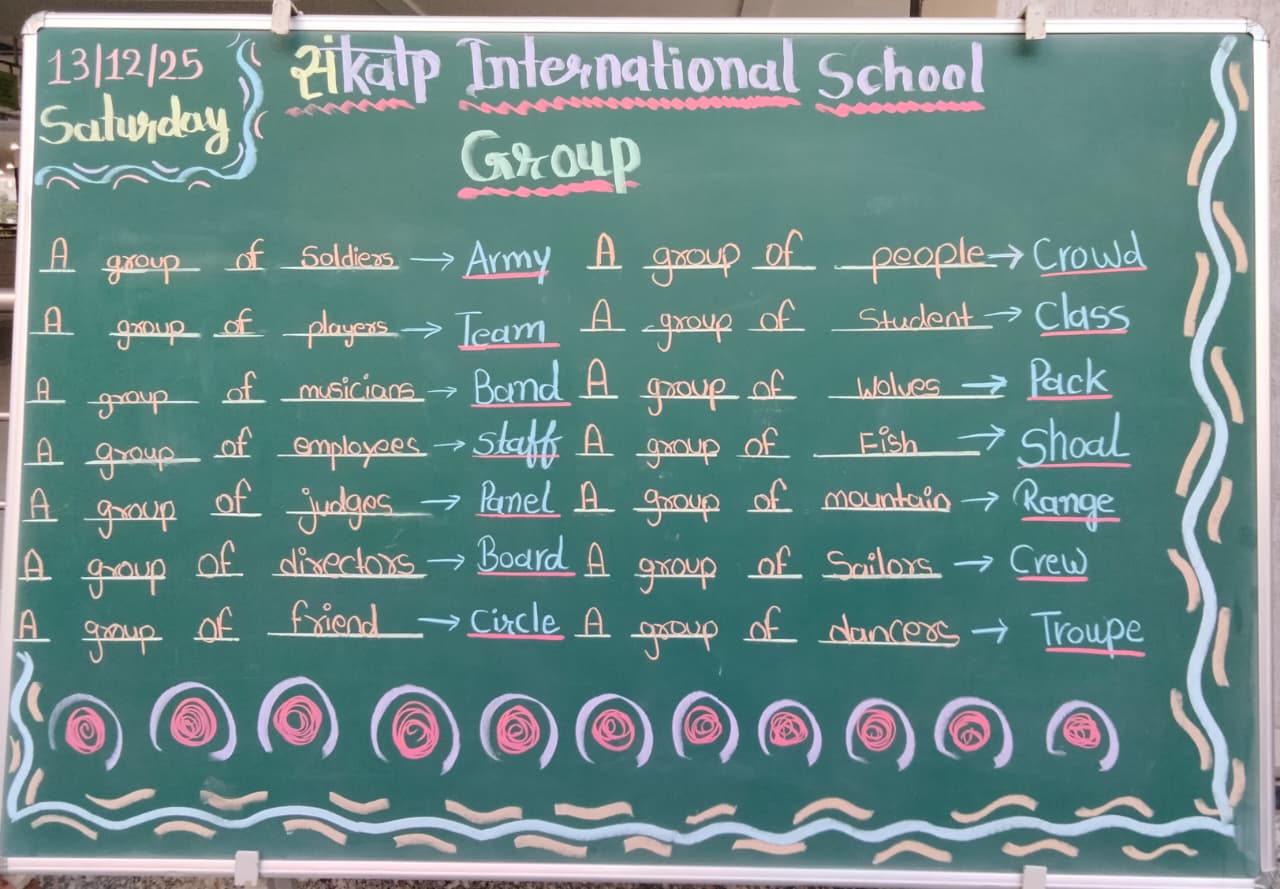 13/12/25
Saturday
संkalp International School
Group
A group of Soldiers → Army
A group of players → Team
A group of musicians → Band
A group of employees → Staff
A group of judges → Panel
A group of directors → Board
A group of friend → Circle
A group of people → Crowd
A group of Student → Class
A group of Wolves → Pack
A group of Fish → Shoal
A group of mountain → Range
A group of Sailors → Crew
A group of dancers → Troupe